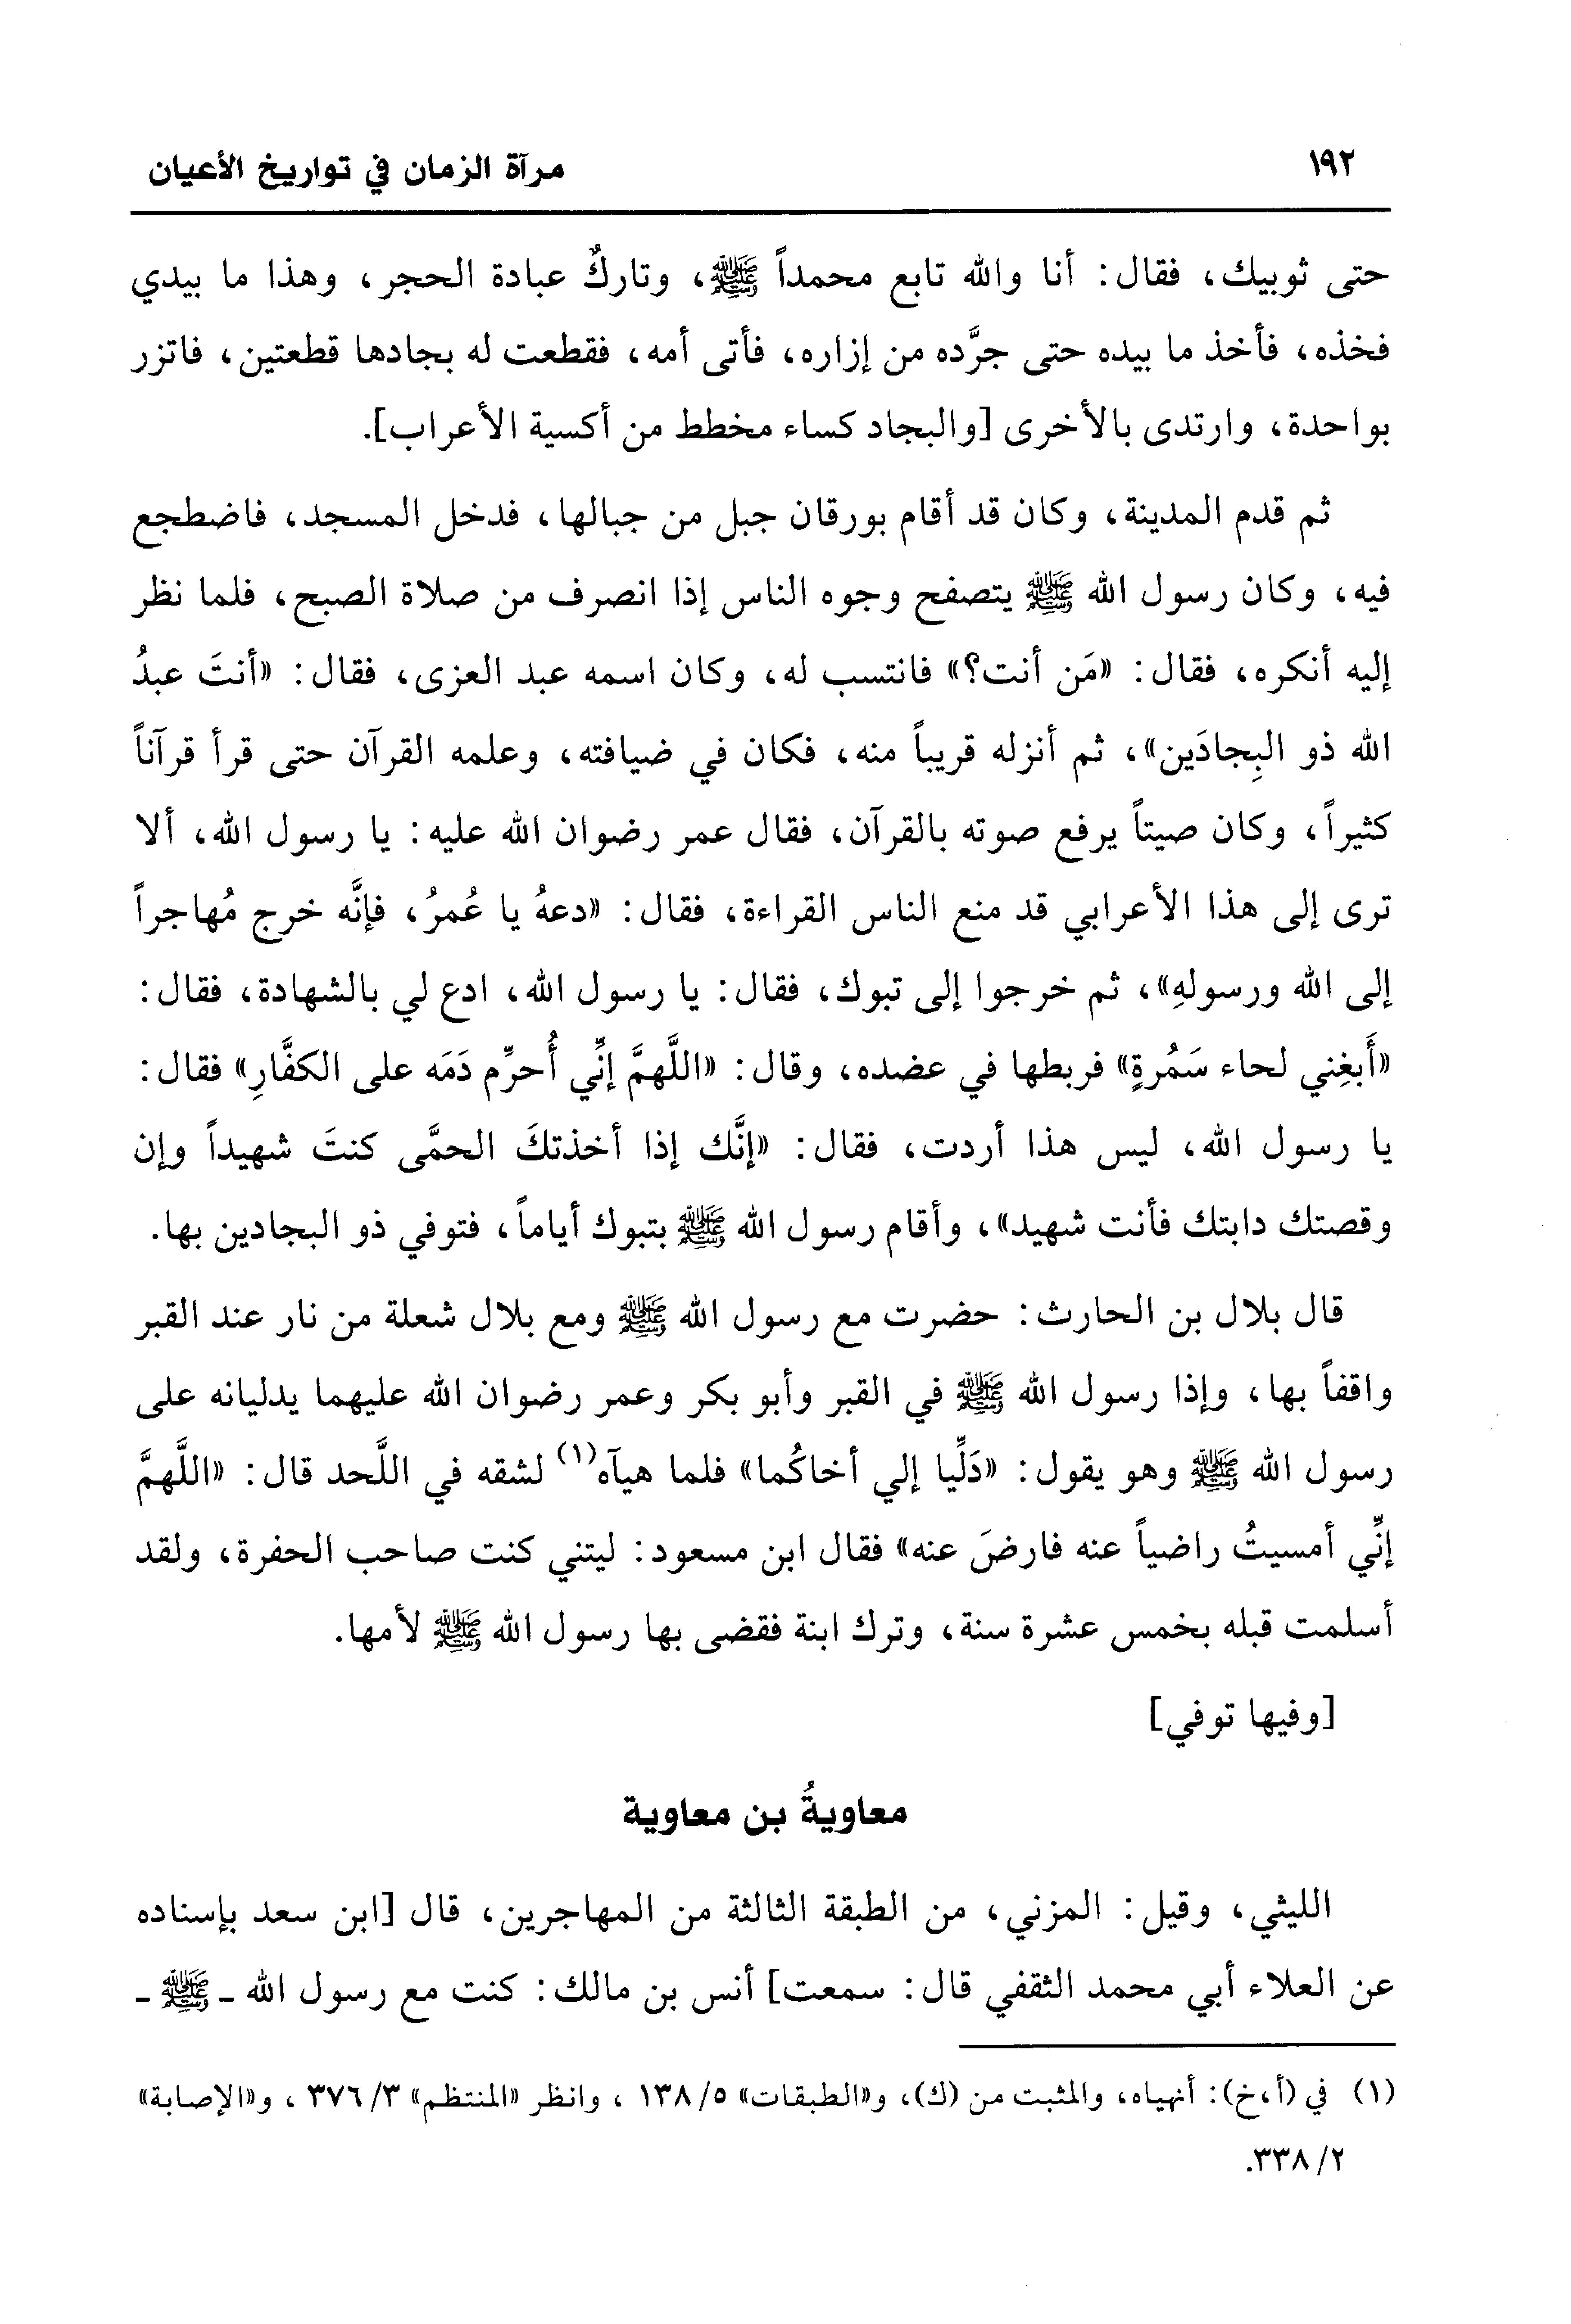 ١٩٢
مرآة الزمان في تواريخ الأعيان
حتى ثوبيك، فقال: أنا والله تابع محمداً ﷺ، وتاركٌ عبادة الحجر، وهذا ما بيدي
فخذه، فأخذ ما بيده حتى جرَّده من إزاره، فأتى أمه، فقطعت له بجادها قطعتين، فاتزر
بواحدة، وارتدى بالأخرى [والبجاد كساء مخطط من أكسية الأعراب].
ثم قدم المدينة، وكان قد أقام بورقان جبل من جبالها، فدخل المسجد، فاضطجع
فيه، وكان رسول الله ﷺ يتصفح وجوه الناس إذا انصرف من صلاة الصبح، فلما نظر
إليه أنكره، فقال: «مَن أنت؟» فانتسب له، وكان اسمه عبد العزى، فقال: «أنتَ عبدُ
الله ذو البِجادَين»، ثم أنزله قريباً منه، فكان في ضيافته، وعلمه القرآن حتى قرأ قرآناً
كثيراً، وكان صيتاً يرفع صوته بالقرآن، فقال عمر رضوان الله عليه: يا رسول الله، ألا
ترى إلى هذا الأعرابي قد منع الناس القراءة، فقال: «دعهُ يا عُمرُ، فإنَّه خرج مُهاجراً
إلى الله ورسولهِ»، ثم خرجوا إلى تبوك، فقال: يا رسول الله، ادع لي بالشهادة، فقال:
«أَبغِني لحاء سَمُرةٍ» فربطها في عضده، وقال: «اللَّهمَّ إنِّي أُحرِّم دَمَه على الكفَّارِ» فقال:
يا رسول الله، ليس هذا أردت، فقال: «إنَّك إذا أخذتكَ الحمَّى كنتَ شهيداً وإن
وقصتك دابتك فأنت شهيد»، وأقام رسول الله ﷺ بتبوك أياماً، فتوفي ذو البجادين بها.
قال بلال بن الحارث: حضرت مع رسول الله ﷺ ومع بلال شعلة من نار عند القبر
واقفاً بها، وإذا رسول الله ﷺ في القبر وأبو بكر وعمر رضوان الله عليهما يدليانه على
رسول الله ﷺ وهو يقول: «دَلِّيا إلي أخاكُما» فلما هيآه(١) لشقه في اللَّحد قال: «اللَّهمَّ
إنِّي أمسيتُ راضياً عنه فارضَ عنه» فقال ابن مسعود: ليتني كنت صاحب الحفرة، ولقد
أسلمت قبله بخمس عشرة سنة، وترك ابنة فقضى بها رسول الله ﷺ لأمها.
[وفيها توفي]
معاويةُ بن معاوية
الليثي، وقيل: المزني، من الطبقة الثالثة من المهاجرين، قال [ابن سعد بإسناده
عن العلاء أبي محمد الثقفي قال: سمعت] أنس بن مالك: كنت مع رسول الله - ﷺ -
(١) في (أ،خ): أنهياه، والمثبت من (ك)، و«الطبقات» ٥/ ١٣٨ ، وانظر «المنتظم» ٣/ ٣٧٦ ، و«الإصابة»
٢/ ٣٣٨.